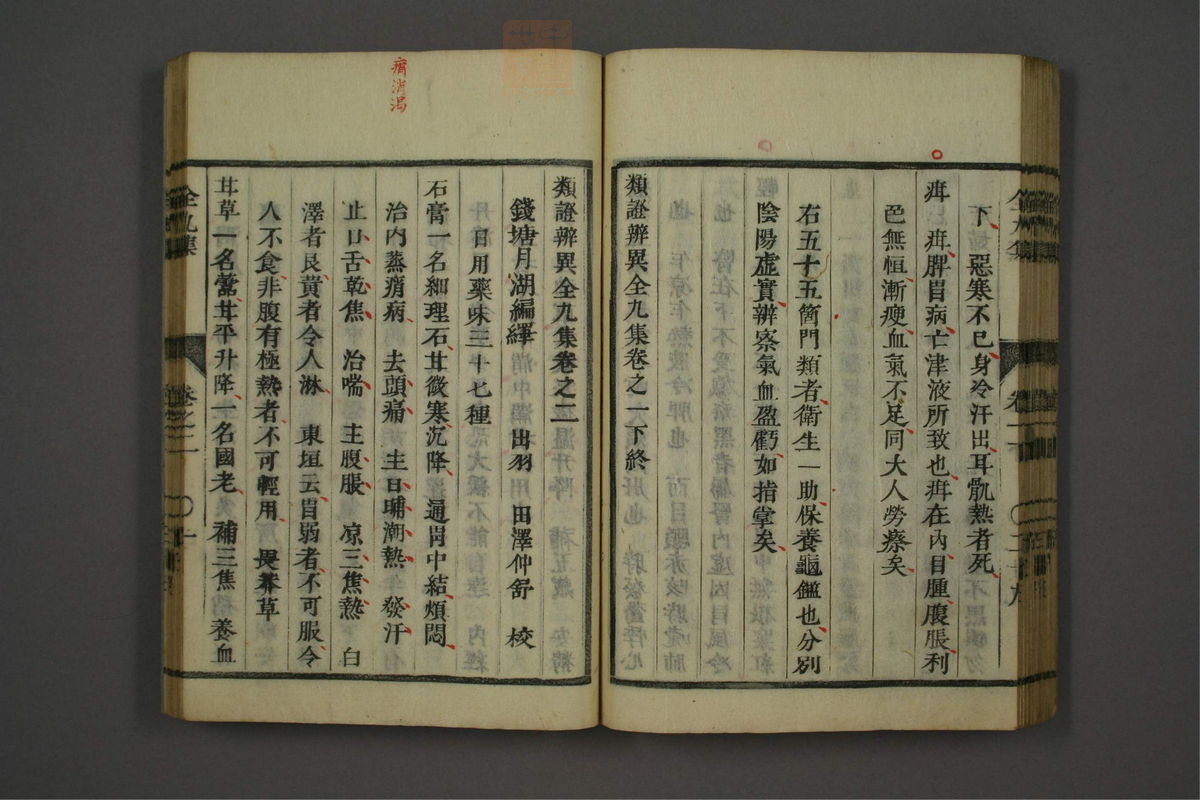 下惡寒不已身冷汗出耳骩熱者死
疳 疳脾胃病亡津液所致也疳在內目腫腹脹利
色無恒漸瘦血氣不足同大人勞瘵矣
右五十五箇門類者衛生一助保養龜鑑也分別
陰陽虛實辨察氣血盈虧如指掌矣
類證辨異全九集卷之一下終
全九集
類證辨異全九集卷之二
錢塘月湖編繹 出羽 田澤仲舒 校
日用藥味三十七種
石膏一名細理石甘微寒沉降 通胃中結煩悶
治內蒸痟病 去頭痛 主日晡潮熱 發汗
止口舌乾焦 治喘 主腹脹 凉三焦熱 白
澤者良黃者令人淋 東垣云胃弱者不可服令
人不食非腹有極熱者不可輕用 畏莽草
甘草一名蕾甘平升降一名國老 補三焦 養血
全九集 卷之二 〇一
痟消渴